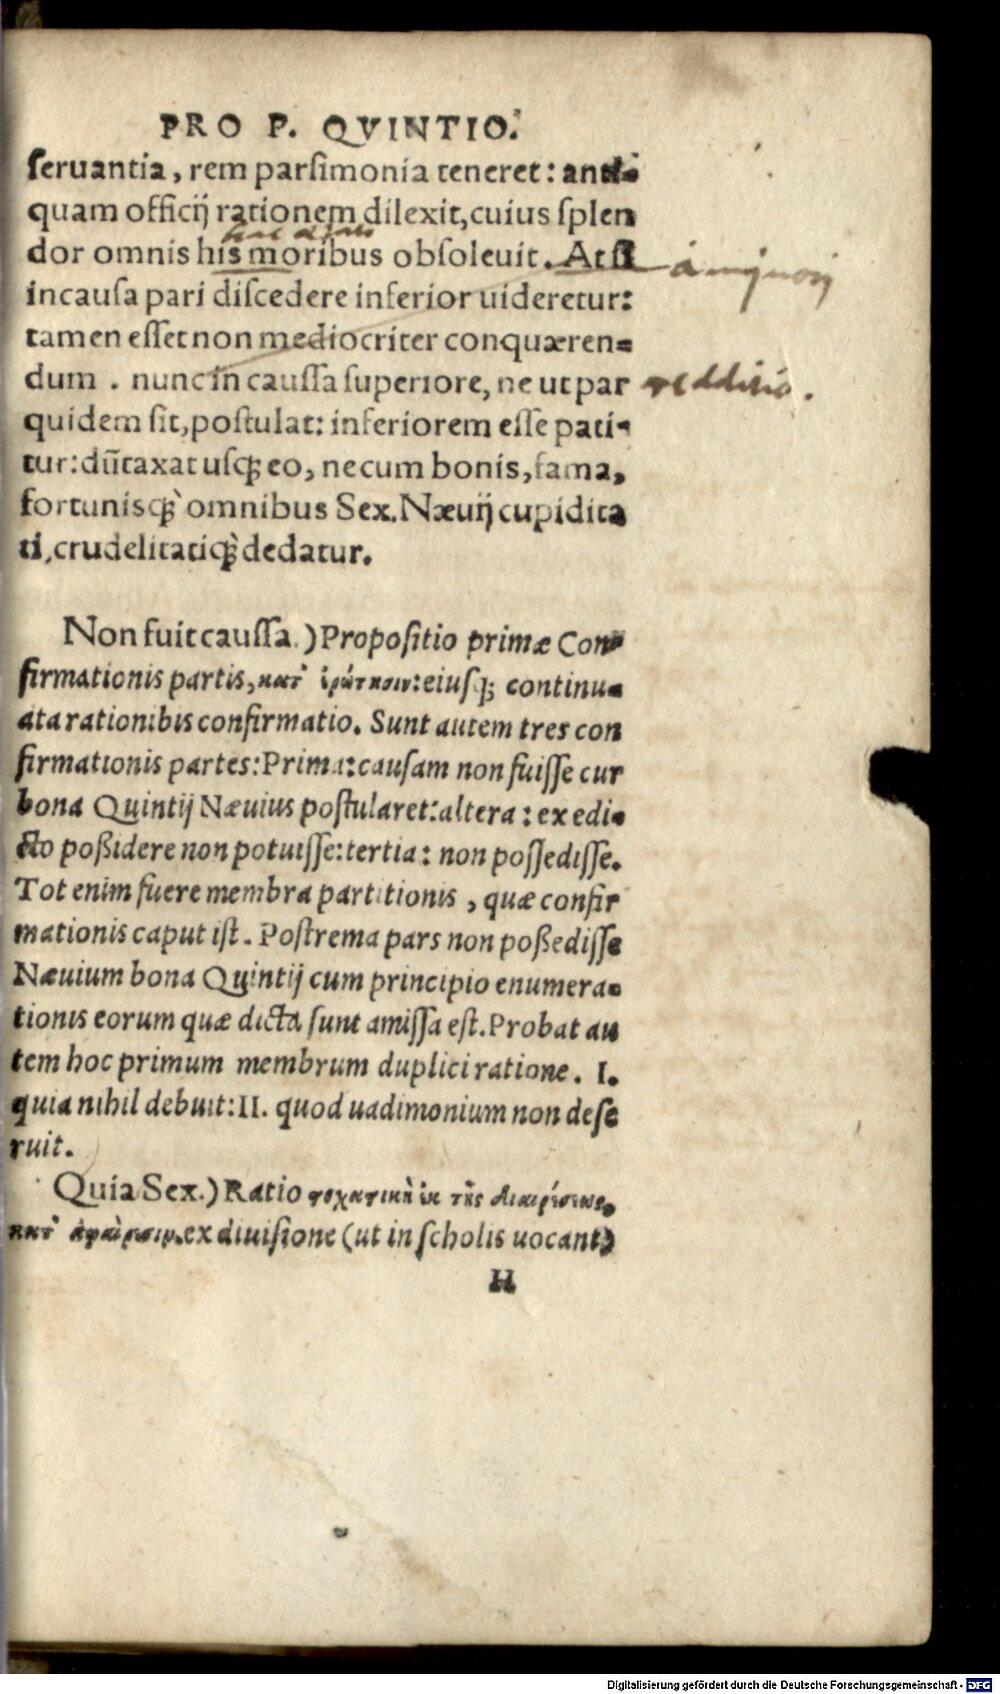 PRO P. QVINTIO.
seruantia, rem parsimonia teneret: anti-
quam officij rationem dilexit, cuius splen
dor omnis his moribus obsoleuit. At si
in causa pari discedere inferior uideretur:
tamen esset non mediocriter conquæren-
dum. nunc in caussa superiore, ne ut par
redditio.
quidem sit, postulat: inferiorem esse pati-
tur: dũtaxat usq; eo, ne cum bonis, fama,
fortunisq; omnibus Sex. Næuij cupidita
ti, crudelitatiq; dedatur.
Non fuit caussa.) Propositio primæ Con-
firmationis partis, κατ' ἐρώτησιν: eiusq; continu-
ata rationibis confirmatio. Sunt autem tres con
firmationis partes: Prima: causam non fuisse cur
bona Quintij Næuius postularet: altera: ex edi-
cto poßidere non potuisse: tertia: non possedisse.
Tot enim fuere membra partitionis, quæ confir
mationis caput ist. Postrema pars non poßedisse
Næuium bona Quintij cum principio enumera-
tionis eorum quæ dicta sunt amissa est. Probat au
tem hoc primum membrum duplici ratione. I.
quia nihil debuit: II. quod uadimonium non dese
ruit.
Quia Sex.) Ratio ἐκ τῆς διαιρέσεως,
κατ' ἀφαίρεσιν. ex diuisione (ut in scholis uocant)
H
Digitalisierung gefördert durch die Deutsche Forschungsgemeinschaft - DFG